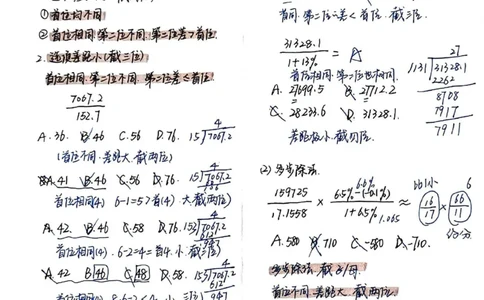 ①首位均不同
②首位相同.第二位不同.第二位差>首位.
2.选项差距小(截三位)
首位相同.第二位不同.第二位差≤首位
7067.2
152.7
A.36. B.46 C.56 D.76. 15 7067.2
4
(首位不同.差距大.截两位)
A.41 B.46 C.56 D.76. 15 7067.2
4
首位相同(4) 6-1=5>首(4).大.截两位)
A.42 B.46 C.58 D.76. 152 7067.2
4
612
947
首位相同(4).6-2=4=首4.小.截三位)
A.42 B.46 C.48 D.58. 153 7067.2
4
612
947
首同.第二位之差<首位.截三位.
31328.1
1+13%
= A
首位相同.第二位也相同.
A.27699.5 B.27712.2
C.28233.6 D.31328.1.
差距极小.截四位.
27
1131 31328.1
2262
8708
7917
7911
(2)多步除法.
159725
17.1558
×
6.6%
6.5%-(-0.1%)
1+6.5% 1.065
≈
16
17
×
66
11
A.580 B.710 C.-580 D.-710.
多步除法.截分母.
首位不同.差距大.截两位.